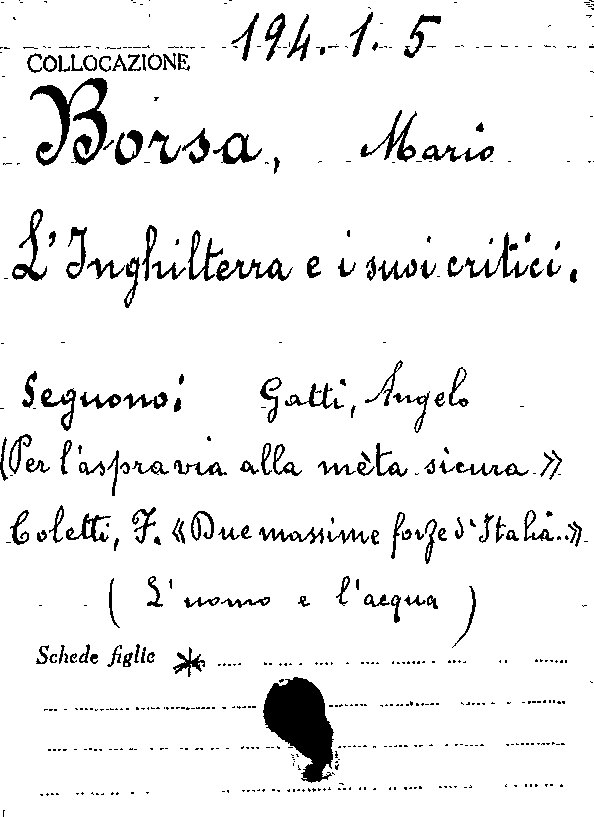 194.1.5
COLLOCAZIONE
Borsa, Mario
L'Inghilterra e i suoi critici.
Seguono: Gatti, Angelo
(Per l'aspra via alla mèta sicura»
Coletti, F. «Due massime forze d'Italia..»
(L'uomo e l'acqua)
Schede figlie *